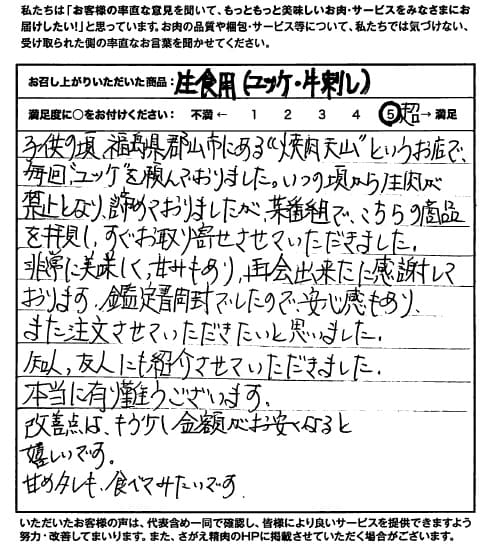 私たちは「お客様の率直な意見を聞いて、もっともっと美味しいお肉・サービスをみなさまにお
届けしたい！」と思っています。お肉の品質や梱包・サービス等について、私たちでは気づけない、
受け取られた側の率直なお言葉を聞かせてください。
お召し上がりいただいた商品：生食用（ユッケ・牛刺し）
満足度に○をお付けください： 不満 ← 1 2 3 4 5 超→ 満足
子供の頃、福島県郡山市にある“焼肉天山”というお店で、
毎回“ユッケ”を頼んでおりました。いつの頃から生肉が
禁止となり、諦めておりましたが、某番組で、こちらの商品
を拝見し、すぐお取り寄せさせていただきました。
非常に美味しく、甘みもあり、再会出来たに感謝して
おります。鑑定書同封でしたので、安心感もあり、
また注文させていただきたいと思いました。
知人、友人にも紹介させていただきました。
本当に有り難うございます。
改善点は、もう少し金額がお安くなると
嬉しいです。
甘めタレも、食べてみたいです。
いただいたお客様の声は、代表含め一同で確認し、皆様により良いサービスを提供できますよう
努力・改善してまいります。また、さがえ精肉のHPに掲載させていただく場合がございます。